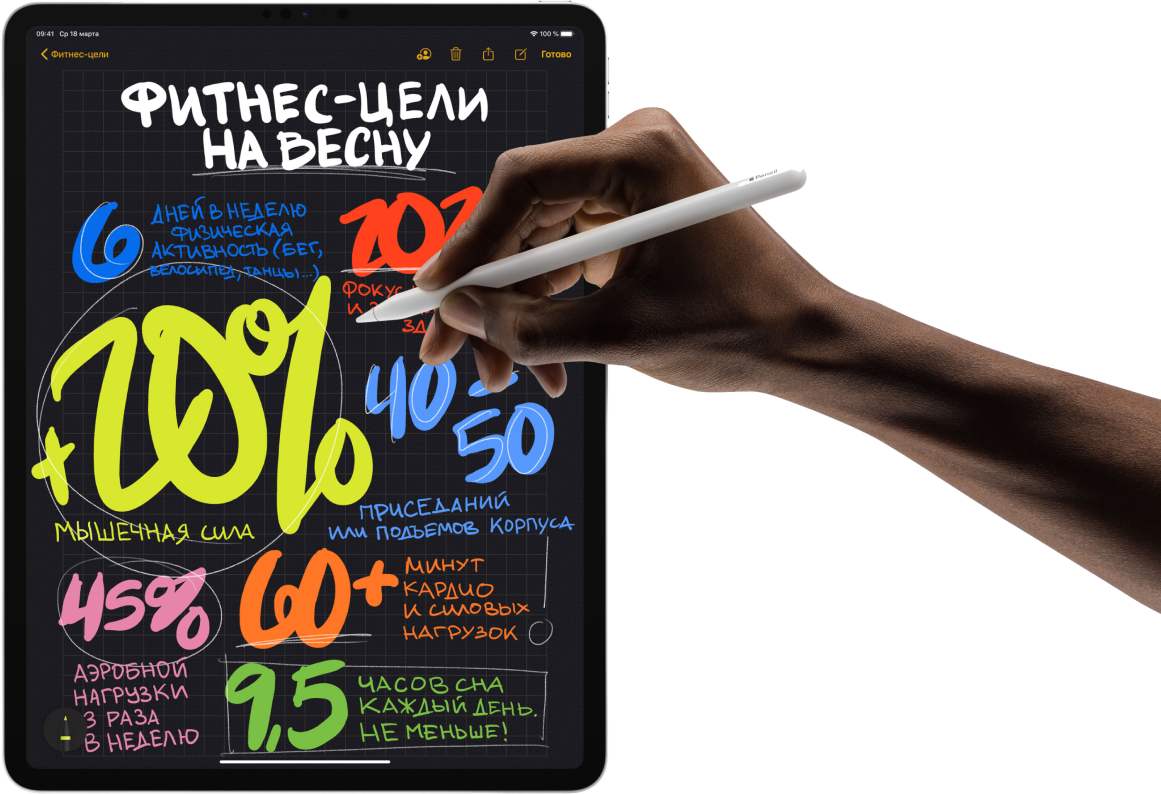 09:41 Ср 18 марта
100 %
Фитнес-цели
Готово
ФИТНЕС-ЦЕЛИ
НА ВЕСНУ
6
ДНЕЙ В НЕДЕЛЮ
ФИЗИЧЕСКАЯ
АКТИВНОСТЬ (БЕГ,
ВЕЛОСИПЕД, ТАНЦЫ...)
И
+20%
МЫШЕЧНАЯ СИЛА
40-
50
ПРИСЕДАНИЙ
ИЛИ ПОДЪЕМОВ КОРПУСА
45%
АЭРОБНОЙ
НАГРУЗКИ
3 РАЗА
В НЕДЕЛЮ
60+
МИНУТ
КАРДИО
И СИЛОВЫХ
НАГРУЗОК
9,5
ЧАСОВ СНА
КАЖДЫЙ ДЕНЬ.
НЕ МЕНЬШЕ!
Pencil